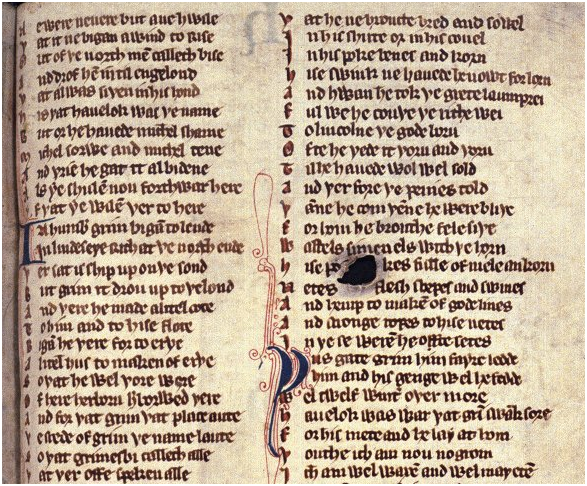 N ewere neuere but ane hwile
þ at it ne bigan a wind to rise
O ut of þe north mē calleth bise
A nd drof hē intil engelond
þ at al was siþen in his hond
h is þat hauelok was þe name
B ut or he hauede michel shame
M ichel sorwe and michel tene
A nd þrie he gat it al bidene
A ls ye shulen nou forthwar here
Y f þat ye wilē þer to here
In humbˀ grim bigan to lende
In lindeseye rith at þe north ende
þ er sat is ship up on þe sond
B ut grim it drou up to þe lond
A nd þere he made a litel cote
T o him and to hise flote
B igā he þere for to erþe
A litel hus to maken of erþe
S o þat he wel þore were
O f here herboru herborwed þere
A nd for þat grim þat place aute
þ e stede of grim þe name laute
S o þat grimesbi calleth alle
þ at þer offe speken alle
þ at he ne brouthe bred and sowel
I n his shirte or in his couel
I n his poke benes and korn
h ise swink ne hauede he nowt forlorn
A nd hwan he tok þe grete laumprei
F ul wel he couþe þe rithe wei
T o lincolne þe gode boru
O fte he yede it þoru and þoru
T il he hauede wol wel sold
A nd þer fore þe penies told
þ anne he com þenne he were bliþe
F or hom he brouthe fele siþe
W astels simenels with þe horn
h ise po kes fulle of mele an korn
N etes flesh shepes and swines
A nd hemp to makē of gode lines
A nd stronge ropes to hise netes
I n þe se werē he ofte setes
þus gate grim him fayre ledde
him and his genge wel he fedde
W el twelf wintˀ oþer more
h auelok was war þat grī swāk sore
F or his mete and he lay at hom
þ outhe ich am nou no grom
I ch am wel waxē and wel may etē